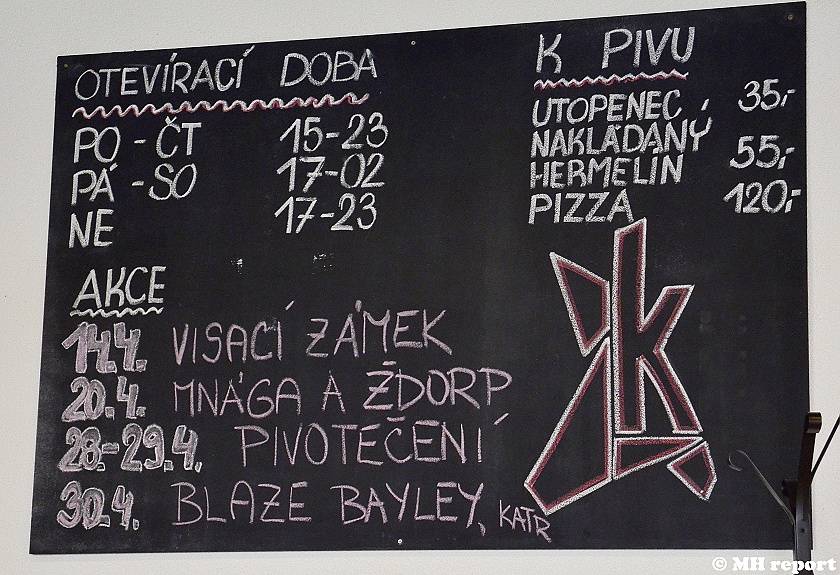 OTEVÍRACÍ DOBA
PO - ČT 15-23
PÁ - SO 17-02
NE 17-23
K PIVU
UTOPENEC 35,-
NAKLÁDANÝ
HERMELÍN 55,-
PIZZA 120,-
AKCE
14.4. VISACÍ ZÁMEK
20.4. MŇÁGA A ŽĎORP
28.-29.4. PIVOTEČENÍ
30.4. BLAZE BAYLEY, KATR
k
© MH report